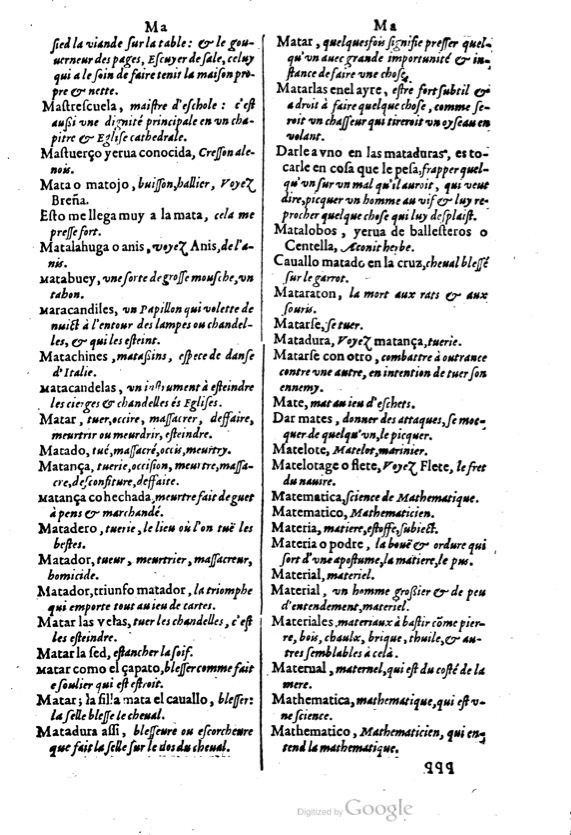 Ma
sied la viande sur la table: & le gou-
uerneur des pages, Escuyer de sale, celuy
qui a le soin de faire tenir la maison pro-
pre & nette.
Mastrescuela, maistre d'eschole: c'est
aussi une dignité principale en un cha-
pitre & Eglise cathedrale.
Mastuerço yerua conocida, Cresson ale-
nois.
Mata o matojo, buisson, hallier, Voyez
Breña.
Esto me llega muy a la mata, cela me
presse fort.
Matalahuga o anis, voyez Anis, de l'a-
nis.
Matabuey, une sorte de grosse mousche, un
tahon.
Maracandiles, un Papillon qui volette de
nuict à l'entour des lampes ou chandel-
les, & qui les esteint.
Matachines, matassins, espece de danse
d'Italie.
Matacandelas, un instrument à esteindre
les cierges & chandelles és Eglises.
Matar, tuer, occire, massacrer, deffaire,
meurtrir ou meurdrir, esteindre.
Matado, tué, massacré, occis, meurtry.
Matança, tuerie, occision, meurtre, massa-
cre, desconfiture, deffaite.
Matança cohechada, meurtre fait de guet
à pens & marchandé.
Matadero, tuerie, le lieu où l'on tuë les
bestes.
Matador, tueur, meurtrier, massacreur,
homicide.
Matador, triunfo matador, la triomphe
qui emporte tout au ieu de cartes.
Matar las velas, tuer les chandelles, c'est
les esteindre.
Matar la sed, estancher la soif.
Matar como el çapato, blesser comme fait
e soulier qui est estroit.
Matar; la silla mata el cauallo, blesser:
la selle blesse le cheual.
Matadura assi, blesseure ou escorcheure
que fait la selle sur le dos du cheual.
Ma
Matar, quelquesfois signifie presser quel-
qu'un auec grande importunité & in-
stance de faire une chose.
Matarlas en el ayre, estre fort subtil &
a droit à faire quelque chose, comme se-
roit un chasseur qui tireroit un oyseau en
volant.
Darle a vno en las mataduras, es to-
carle en cosa que le pesa, frapper quel-
qu'un sur un mal qu'il auroit, qui veut
dire, picquer un homme au vif & luy re-
procher quelque chose qui luy desplaist.
Matalobos, yerua de ballesteros o
Centella, Aconit herbe.
Cauallo matado en la cruz, cheual blessé
sur le garrot.
Mataraton, la mort aux rats & aux
souris.
Matarse, se tuer.
Matadura, Voyez matança, tuerie.
Matarse con otro, combattre à outrance
contre une autre, en intention de tuer son
ennemy.
Mate, mat au ieu d'eschets.
Dar mates, donner des attaques, se moc-
quer de quelqu'un, le picquer.
Matelote, Matelot, marinier.
Matelotage o flete, Voyez Flete, le fret
du nauire.
Matematica, science de Mathematique.
Matematico, Mathematicien.
Materia, matiere, estoffe, subiect.
Materia o podre, la bouë & ordure qui
sort d'une apostume, la matiere, le pus.
Material, materiel.
Material, un homme grossier & de peu
d'entendement, materiel.
Materiales, materiaux à bastir cõme pier-
re, bois, chaulx, brique, thuile, & au-
tres semblables à celà.
Maternal, maternel, qui est du costé de la
mere.
Mathematica, mathematique, qui est v-
ne science.
Mathematico, Mathematicien, qui en-
tend la mathematique.
qqq
Digitized by Google